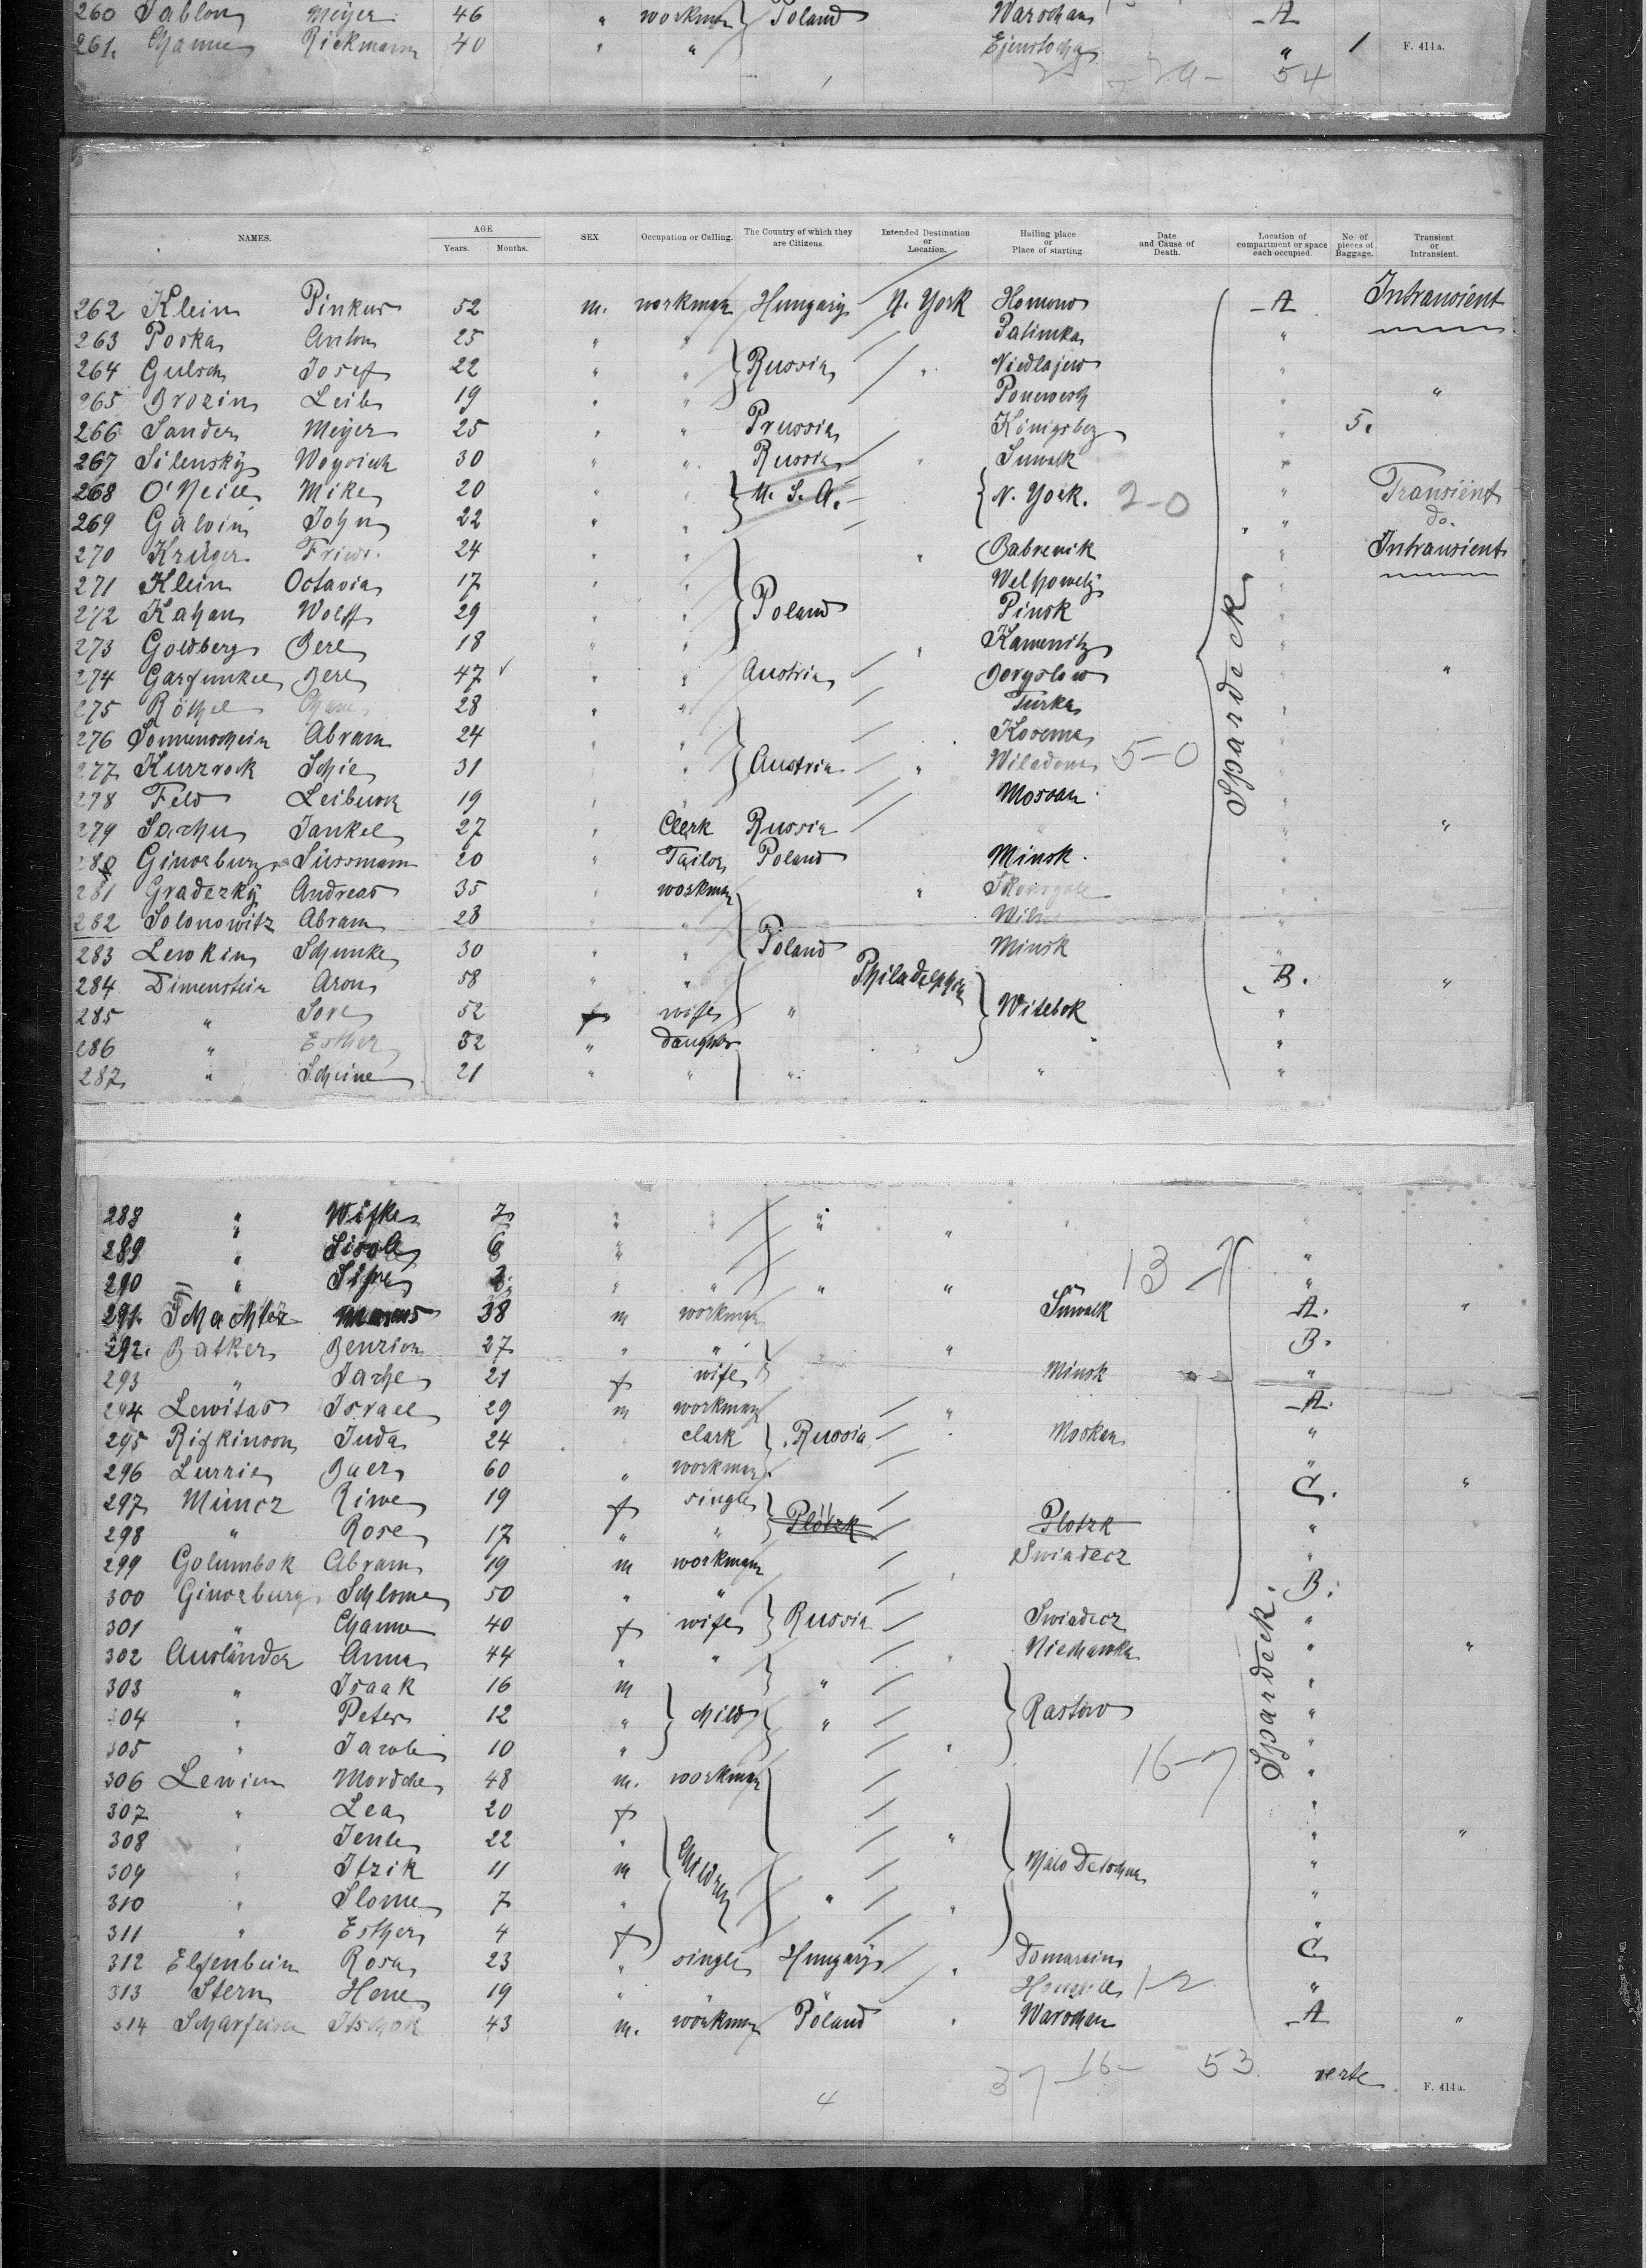 260 Jablon Meyer 46 " workman } Poland Warschau A
261. Channe Rickmann 40 " " " 1 F. 414a.
54
NAMES. AGE Years. Months. SEX Occupation or Calling. The Country of which they are Citizens. Intended Destination or Location. Hailing place or Place of starting. Date and Cause of Death. Location of compartment or space each occupied. No. of pieces of Baggage. Transient or Intransient.
262 Klein Pinkus 52 m. workman Hungary N. York Homono A Intransient
263 Poska Anton 25 " " Palimka "
264 Gulsch Josef 22 " " } Russia " Niedlajew "
265 Brozin Leib 19 " " Ponewesch " "
266 Sander Meyer 25 " " Prussia Königsbg " 5.
267 Silensky Woyciech 30 " " Russia " Suwalk "
268 O'Neill Mike 20 " " } U. S. A. } N. York. 2-0 " Transient
269 Galvin John 22 " " " do.
270 Krüger Friedr. 24 " " " Babrenik " Intransient
271 Klein Octavia 17 " " Welpowelz "
272 Kahan Wolff 29 " " } Poland Pinsk "
273 Goldberg Bere 18 " " " Kamenitz "
274 Garfunkel Bere 47 " " Austria Boryslaw " "
275 Röthel Chane 28 " " Turka "
276 Sonnenschein Abram 24 " " " Kosema "
277 Kurzrock Schie 31 " " } Austria " Wiladema 5-0 "
278 Feld Leibusch 19 " " Mosvan "
279 Sachu Jankel 27 " Clerk Russia " " "
280 Ginsburg Süssmann 20 " Tailor Poland Minsk. "
281 Gradezky Andreas 35 " workman " "
282 Solonowitz Abram 28 " " Wilna "
283 Lewkin Schumke 30 " " } Poland Minsk "
284 Dimenstein Aron 58 " " Philadelphia B. "
285 " Sore 52 f wife " } Witebsk "
286 " Esther 32 " daughter " " "
287 " Scheine 21 " " " " "
Spardeck
288 " Wifke 7 " " " " "
289 " Sisole 6 " "
290 " Sipre " " " " 13-7 "
291. Schachter 38 m workman Suwalk A. "
292. Batker Benzion 27 " " " " B.
293 " Tache 21 f wife Minsk "
294 Lewitas Israel 29 m workman " A.
295 Rifkinson Juda 24 clark } Russia " Moskau "
296 Lurrie Baer 60 " workman "
297 Müncz Riwe 19 f single C. "
298 " Rose 17 " " } Plotzk Plotzk "
299 Golumbok Abram 19 m workman " Swiadecz "
300 Ginsburg Schlome 50 " " B.
301 " Channe 40 f wife } Russia Swiadecz "
302 Ausländer Anna 44 " " " Niechawka " "
303 " Isaak 16 m " "
304 " Peter 12 " } child " } Rastow "
305 " Jacob 10 " " "
306 Lewin Mordche 48 m. workman 16-7 "
307 " Lea 20 f "
308 " Jente 22 " " " "
309 " Itzik 11 m } Children } Malo Detschna "
310 " Slome 7 " " " "
311 " Esther 4 f "
312 Elfenbein Rosa 23 " single Hungary " C
313 Stern Hene 19 " 1-2 "
314 Scharfstein Itschok 43 m. workman Poland " Warschau A "
Spardeck.
37 16- 53 verte F. 414a.
4